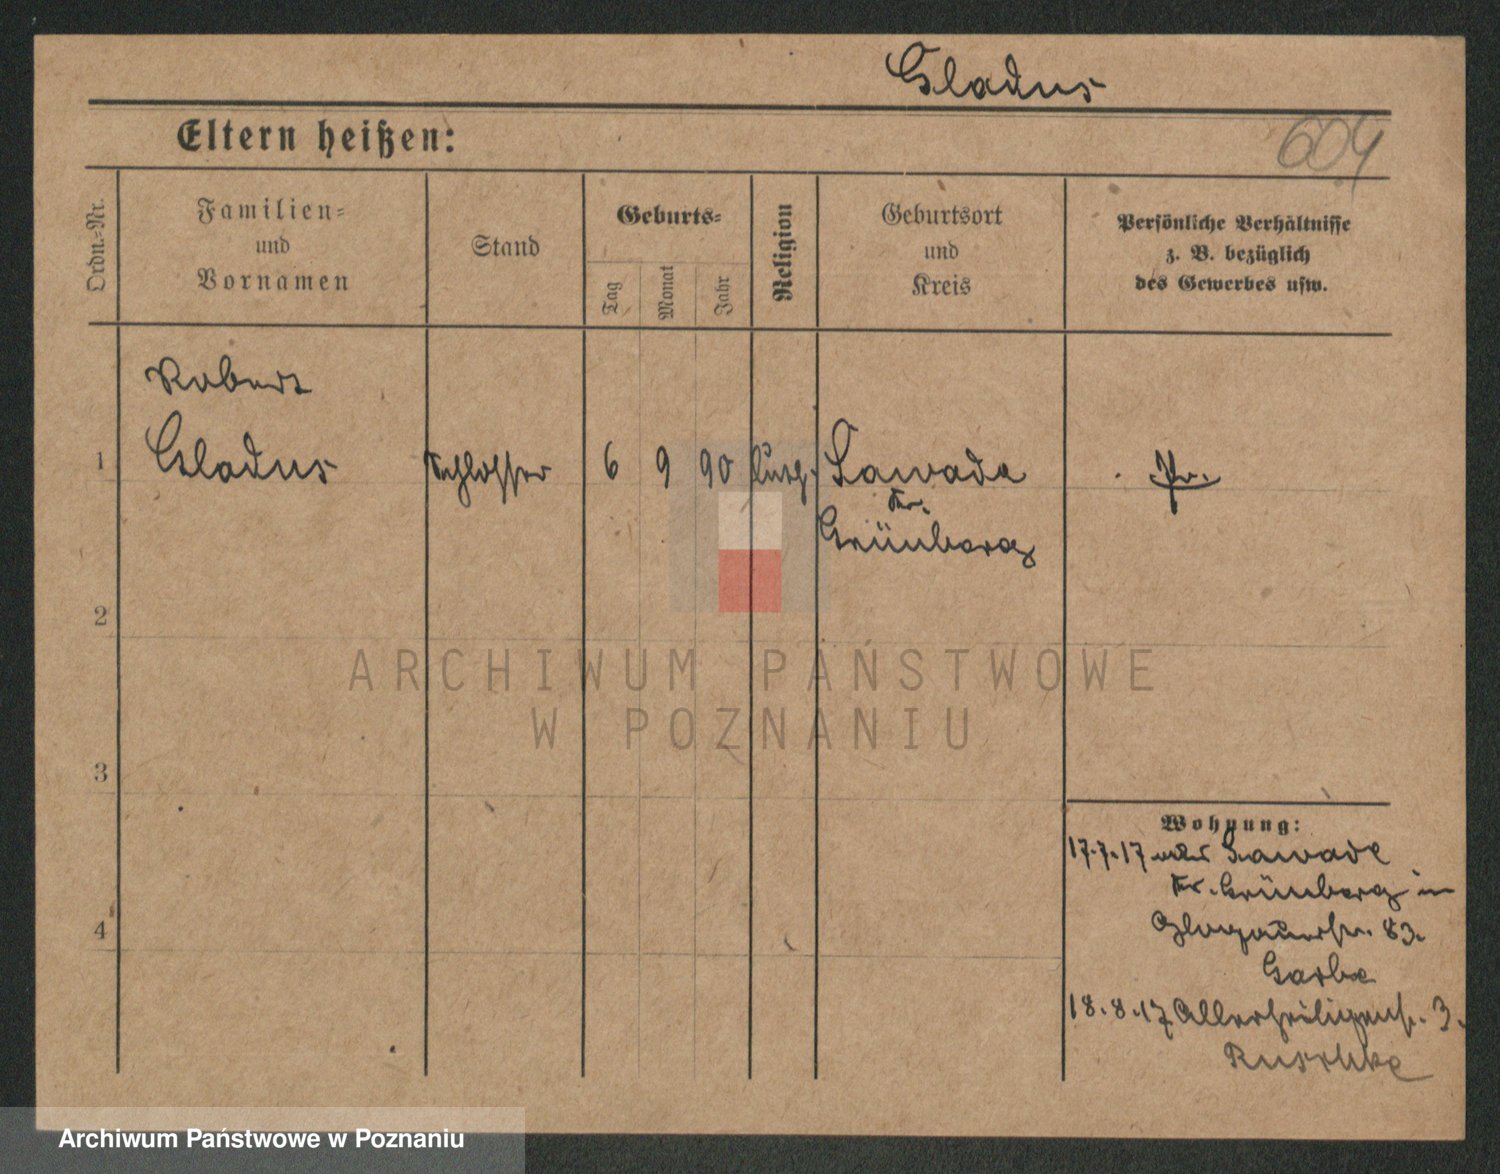 Gladus
Eltern heißen:
604
Ordn.-Nr.
Familien-
und
Vornamen
Stand
Geburts-
Tag
Monat
Jahr
Religion
Geburtsort
und
Kreis
Persönliche Verhältnisse
z. B. bezüglich
des Gewerbes usw.
Robert
1 Gladus Schlosser 6 9 90 Sawade Pr.
Kr.
Grünberg
2
ARCHIWUM PAŃSTWOWE
W POZNANIU
3
Wohnung:
17.7.17 Sawade
Kr. Grünberg in
Glogauerstr. 83.
Garbe
4
18.8.17 Allerheiligenstr. 3.
Ruschke
Archiwum Państwowe w Poznaniu